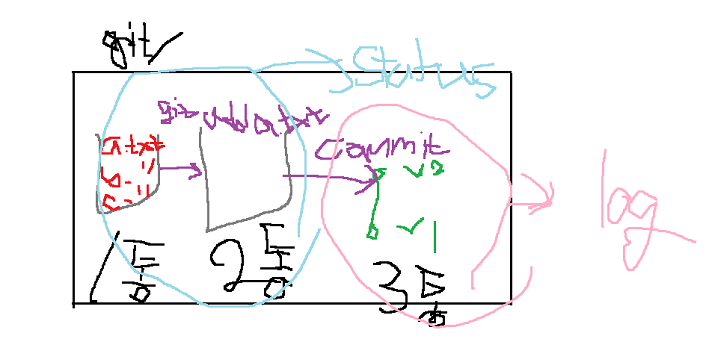 git
status
git add a.txt
a.txt
b-"
c-"
commit
v2
v1
log
1통
2통
3통